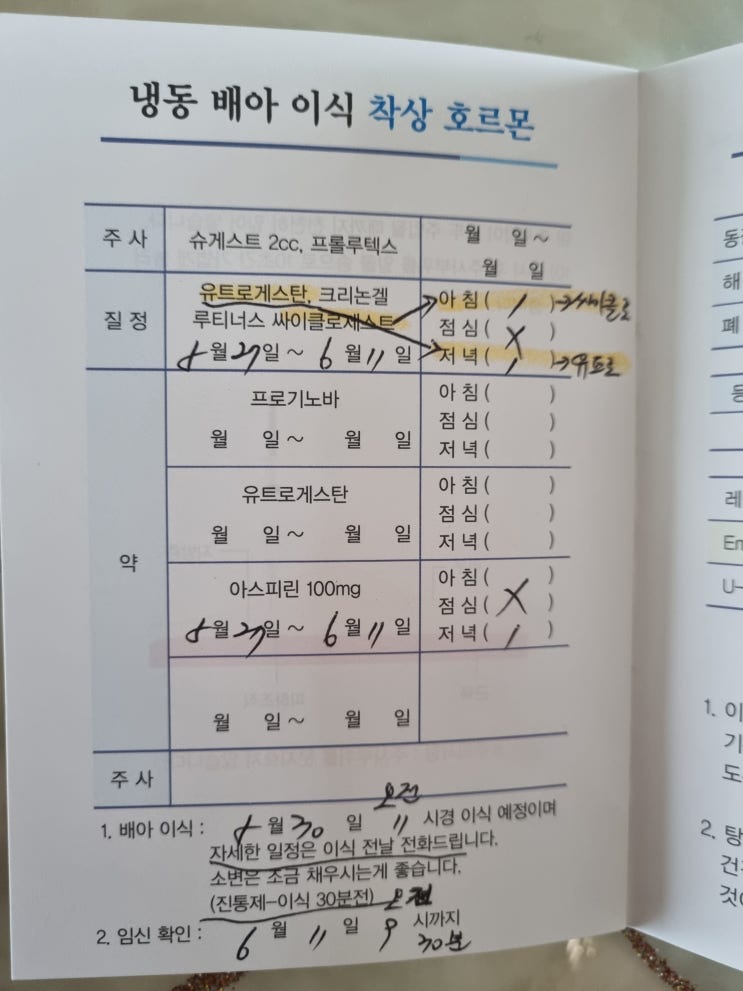 냉동 배아 이식 착상 호르몬
주 사
슈게스트 2cc, 프롤루텍스
월 일~
월 일
질 정
유트로게스탄, 크리논겔
루티너스 싸이클로제스트
5월 27일~ 6월 11일
아 침( / )→싸이클로
점 심( X )
저 녁( / )→유트로
약
프로기노바
월 일~ 월 일
아 침( )
점 심( )
저 녁( )
유트로게스탄
월 일~ 월 일
아 침( )
점 심( )
저 녁( )
아스피린 100mg
5월 27일~ 6월 11일
아 침( X
점 심( )
저 녁( / )
월 일~ 월 일
주 사
1. 배아 이식 : 5월 30일 오전 11 시경 이식 예정이며
자세한 일정은 이식 전날 전화드립니다.
소변은 조금 채우시는게 좋습니다.
(진통제-이식 30분전) 오전
2. 임신 확인 : 6 월 11 일 9 시까지
30분
동
해
폐
레
Em
U-
1. 이
기
도
2. 탕
건
것이